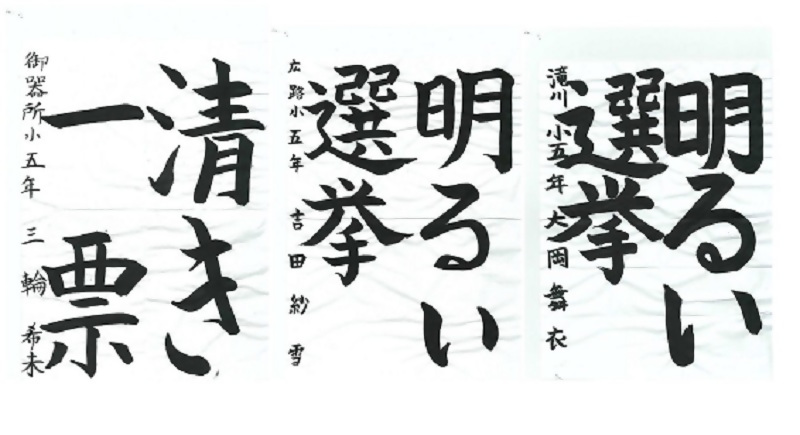 明るい
選挙
滝川小五年 大岡舞衣
明るい
選挙
広路小五年 吉田紗雪
清き
一票
御器所小五年 三輪希未